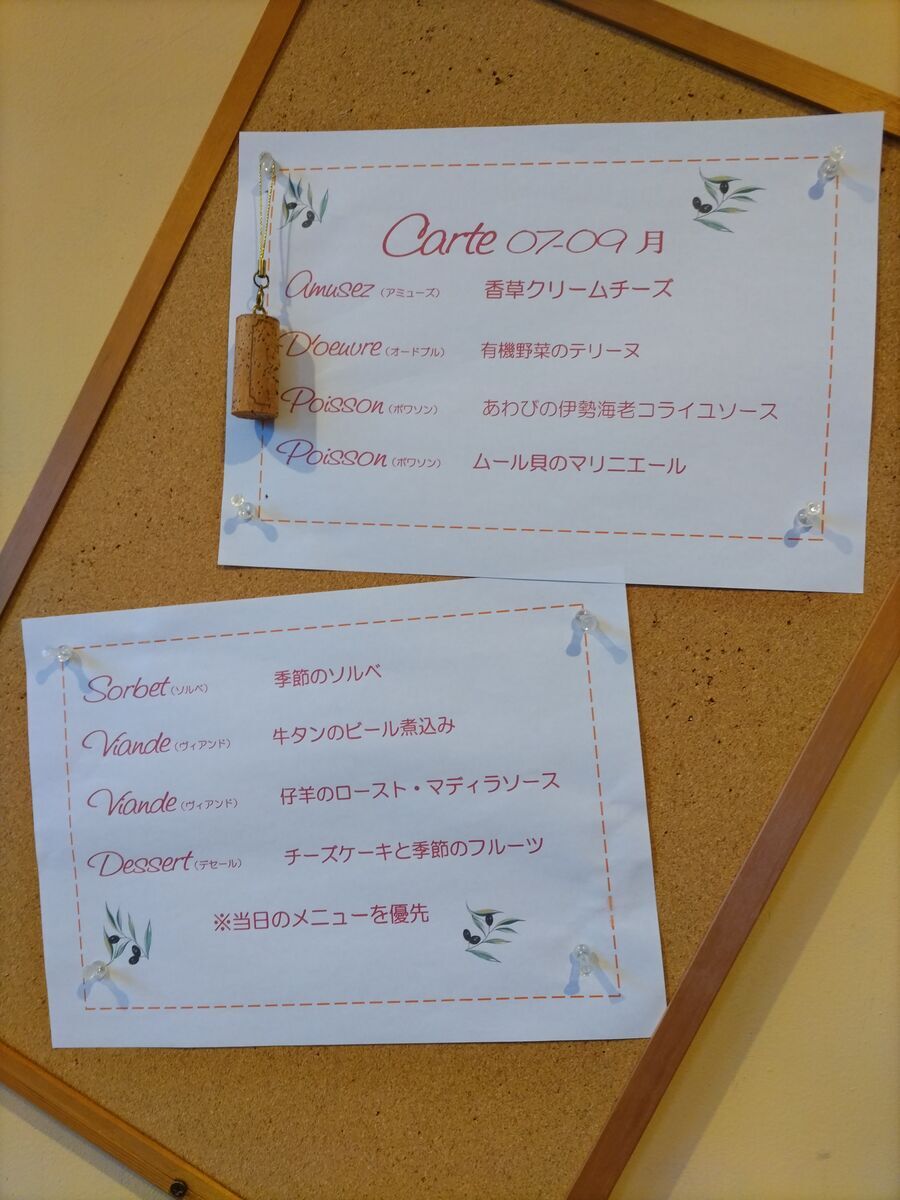 Carte 07-09 月
Amusez (アミューズ) 香草クリームチーズ
D'oeuvre (オードブル) 有機野菜のテリーヌ
Poisson (ポワソン) あわびの伊勢海老コライユソース
Poisson (ポワソン) ムール貝のマリニエール
Sorbet (ソルベ) 季節のソルベ
Viande (ヴィアンド) 牛タンのビール煮込み
Viande (ヴィアンド) 仔羊のロースト・マディラソース
Dessert (デセール) チーズケーキと季節のフルーツ
※当日のメニューを優先